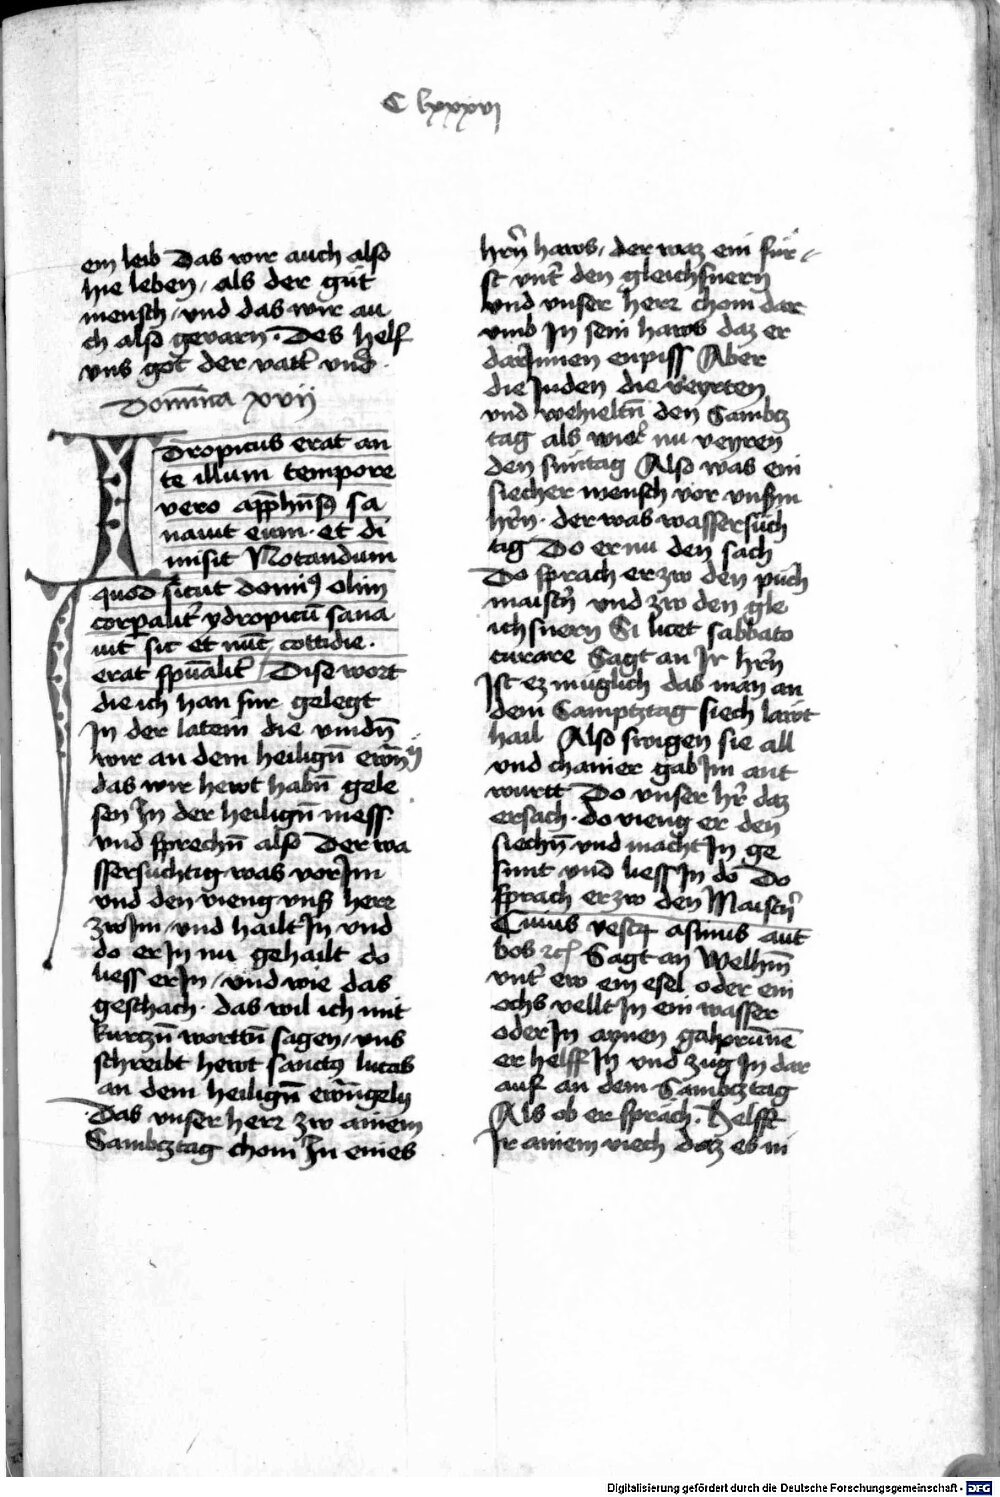 C lxxxvj
ein leib Das wir auch also
hie leben / als der gůt
mensch / vnd das wir au
ch also gevarn · Des helf
vns got der vatt̉ vnd̉ ·
Domi̅ca xvij
Idropicus erat an
te illum tempore
vero app̅hn̅s9 sa
nauit eum · et di
misit Notandum
quod sicut domi9 olim
corp̱alit̉ ydropicu̅ sana
uit sic et nu̅c cottidie ·
erat spu̅alit̉ / Dise wort
die ich han fur gelegt
In der latein die vindn̅
wir an dem heilign̅ ew̅n̅ij
das wir hewt habn̅ gele
sen In der heilign̅ mess ·
vnd sprechn̅ also Der wa
ssersuchtig was vor Im
vnd den vieng vnß herr
zw Im / vnd hailt In vnd
do er In nu gehailt do
liess er In / vnd wie das
geschach · das wil ich mit
kurczn̅ wortn̅ sagen / vns
schreibt hewt sanct9 lucas
an dem heilign̅ ewn̅gely
Das vnser herr zw ainem
Sambcztag chom In eines
hr̅n haws / der waz ein fůr /
st vnt̉ den gleichsnern
vnd vnser herr chom dar
vmb In sein haws daz er
dar Innen enpiss Aber
die Juden die veyrten
vnd wehieltn̅ den Sambcz
tag als wir nu veyren
den suntag Also was ein
siecher mensch vor vnsm̉
hr̅n · der was wassersůch
tig Do er nu den sach
Do sprach er zw den půch
maistn̉ vnd zw den gle
ichsnern Si licet sabbato
curare Sagt an Ir hr̅n
Ist ez muglich das man an
dem Samptztag siech lawt
hail Also swigen sie all
vnd chainer gab Im ant
wurtt Do vnser hr̉ daz
ersach · do vieng er den
siechn̅ · vnd macht In ge
sunt vnd liess In do Do
sprach er zw den Maistn̉
Cuius vestrꝝ asinus aut
bos ⁊c̅ Sagt an Welhm̅
vnt̉ ew ein esel oder ein
ochs vellt In ein wasser
oder In aynen gahprunne̅
er helff In vnd zug In dar
auf an dem Sambcztag
Als ob er sprach · Helfft
Ir ainem viech daz es ni
Digitalisierung gefördert durch die Deutsche Forschungsgemeinschaft - DFG